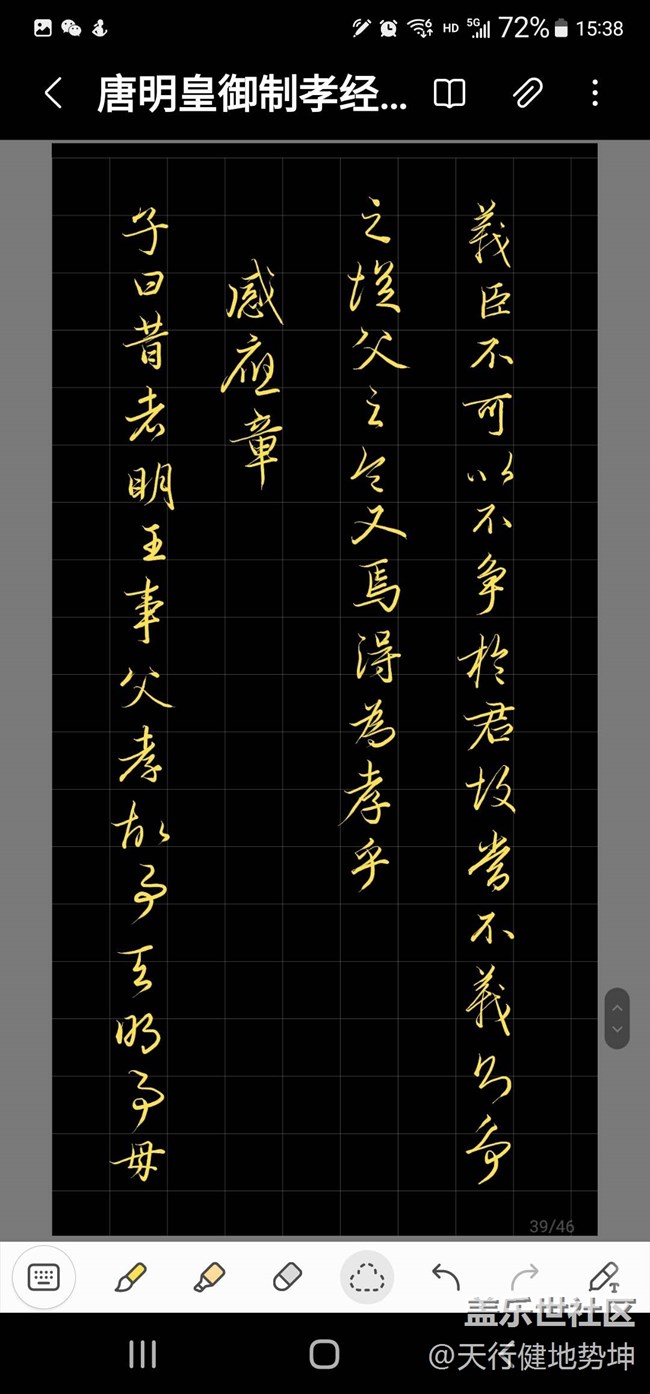 15:38
72%
5G
HD
唐明皇御制孝经...
義臣不可以不争於君故當不義則争
之從父之令又焉得為孝乎
感應章
子曰昔者明王事父孝故事天明事母
39/46
盖乐世社区
@天行健地势坤